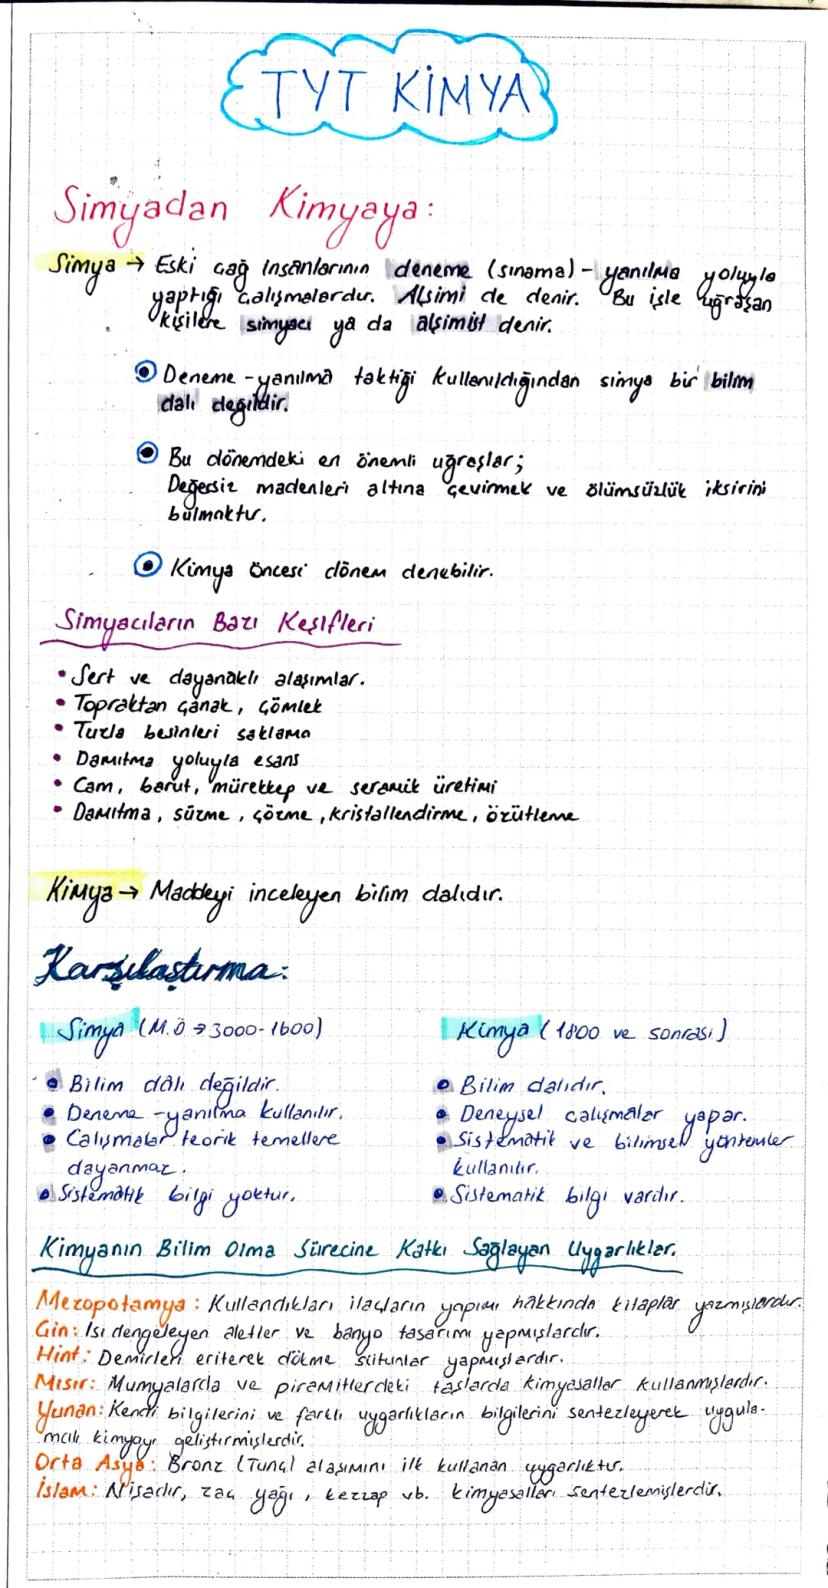 TYT KİMYA
Simyadan Kimyaya:
Simya → Eski çağ insanlarının deneme (sınama) - yanılma yoluyla
yaptığı çalışmalardır. Alşimi de denir. Bu işle uğraşan
kişilere simyacı ya da alşimist denir.
Deneme - yanılma taktiği kullanıldığından simya bir bilim
dalı değildir.
Bu dönemdeki en önemli uğraşlar;
Değersiz madenleri altına çevirmek ve ölümsüzlük iksirini
bulmaktır.
Kimya öncesi dönem denebilir.
Simyacıların Bazı Keşifleri
• Sert ve dayanaklı alaşımlar.
• Topraktan çanak, çömlek
• Tuzla besinleri saklama
• Damıtma yoluyla esans
• Cam, barut, mürekkep ve seramik üretimi
• Damıtma, süzme, çözme, kristallendirme, özütleme
Kimya → Maddeyi inceleyen bilim dalıdır.
Karşılaştırma:
Simya (M.Ö → 3000-1600)
• Bilim dalı değildir.
• Deneme - yanılma kullanılır.
• Çalışmalar teorik temellere
dayanmaz.
• Sistematik bilgi yoktur.
Kimya (1800 ve sonrası)
• Bilim dalıdır.
• Deneysel çalışmalar yapar.
• Sistematik ve bilimsel yöntemler
kullanılır.
• Sistematik bilgi vardır.
Kimyanın Bilim Olma Sürecine Katkı Sağlayan Uygarlıklar.
Mezopotamya: Kullandıkları ilaçların yapımı hakkında kitaplar yazmışlardır.
Çin: Isı dengeleyen aletler ve banyo tasarımı yapmışlardır.
Hint: Demirleri eriterek dökme sütunlar yapmışlardır.
Mısır: Mumyalarda ve piramitlerdeki taşlarda kimyasallar kullanmışlardır.
Yunan: Kendi bilgilerini ve farklı uygarlıkların bilgilerini sentezleyerek uygula-
malı kimyayı geliştirmişlerdir.
Orta Asya: Bronz (Tunç) alaşımını ilk kullanan uygarlıktır.
İslam: Nişadır, zaç yağı, kezzap vb. kimyasalları sentezlemişlerdir.